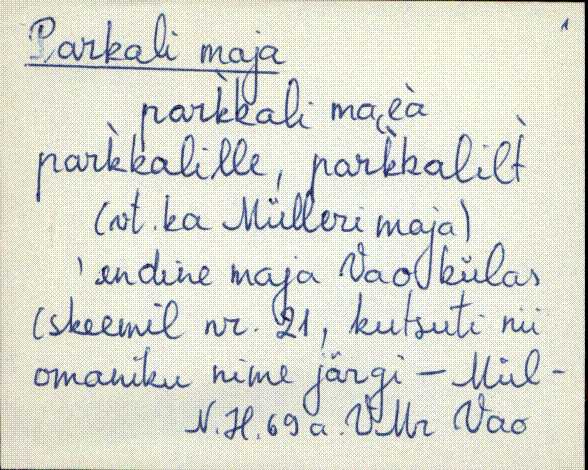 1
Parkali maja
park̀kali mai̯èà
park̀kalille, park̀kalilt̀
(vt. ka Mülleri maja)
' endine maja Vao külas
(skeemil nr. 21, kutsuti nii
omaniku nime järgi – Mül-
N.H. 69 a. VMr Vao